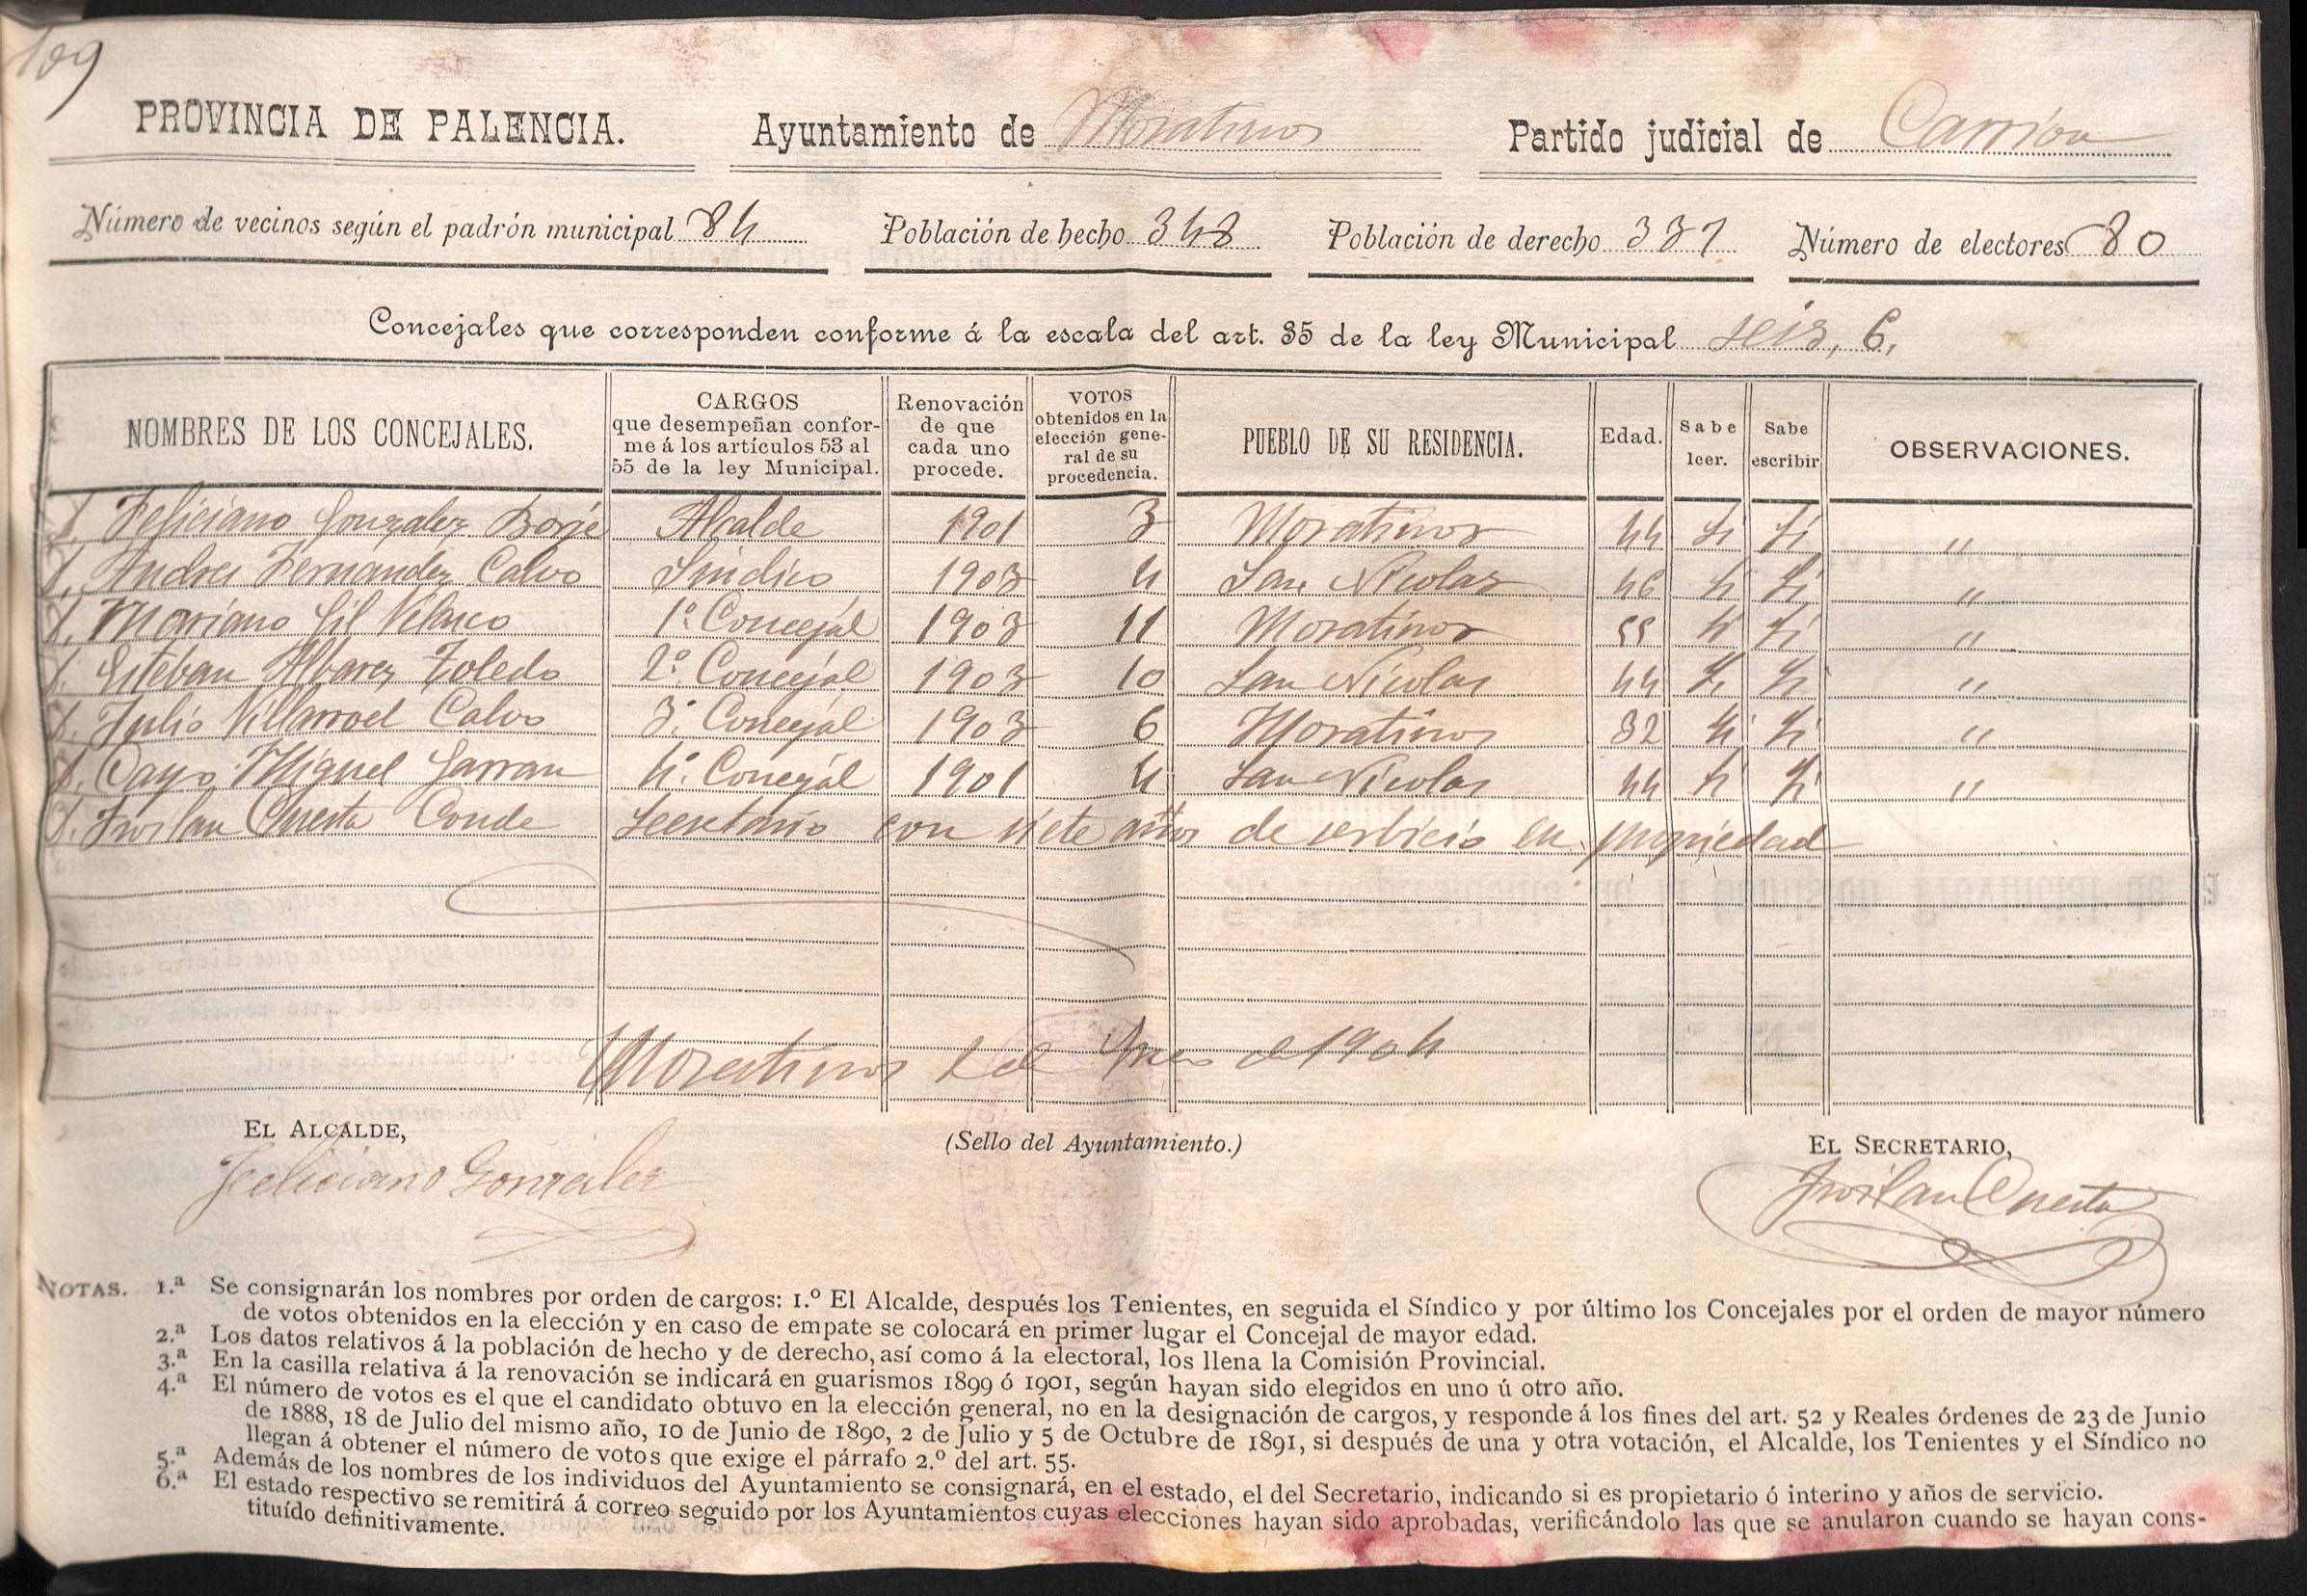 109
PROVINCIA DE PALENCIA. Ayuntamiento de Moratinos Partido judicial de Carrion
Número de vecinos según el padrón municipal 84 Población de hecho 348 Población de derecho 337 Número de electores 80
Concejales que corresponden conforme á la escala del art. 35 de la ley Municipal seis, 6,
NOMBRES DE LOS CONCEJALES. CARGOS que desempeñan conforme á los artículos 53 al 55 de la ley Municipal. Renovación de que cada uno procede. VOTOS obtenidos en la elección general de su procedencia. PUEBLO DE SU RESIDENCIA. Edad. Sabe leer. Sabe escribir OBSERVACIONES.
Feliciano Gonzalez Borje Alcalde 1901 3 Moratinos 44 Si Si "
Andres Fernandez Calvo Sindico 1903 4 San Nicolas 46 Si Si "
Mariano Gil Velasco 1º Concejal 1903 11 Moratinos 55 Si Si "
Esteban Albarez Toledo 2º Concejal 1903 10 San Nicolas 44 Si Si "
Julio Villarroel Calvo 3º Concejal 1903 6 Moratinos 32 Si Si "
Cayo Miguel Garran 4º Concejal 1901 4 San Nicolas 44 Si Si "
Froilan Cuesta Conde Secretario con siete años de serbicio en propiedad
Moratinos de Enero de 1904
EL ALCALDE, (Sello del Ayuntamiento.) EL SECRETARIO,
Feeliciano Gonzalez Froilan Cuesta
NOTAS. 1.ª Se consignarán los nombres por orden de cargos: 1.º El Alcalde, después los Tenientes, en seguida el Síndico y por último los Concejales por el orden de mayor número
de votos obtenidos en la elección y en caso de empate se colocará en primer lugar el Concejal de mayor edad.
2.ª Los datos relativos á la población de hecho y de derecho, así como á la electoral, los llena la Comisión Provincial.
3.ª En la casilla relativa á la renovación se indicará en guarismos 1899 ó 1901, según hayan sido elegidos en uno ú otro año.
4.ª El número de votos es el que el candidato obtuvo en la elección general, no en la designación de cargos, y responde á los fines del art. 52 y Reales órdenes de 23 de Junio
de 1888, 18 de Julio del mismo año, 10 de Junio de 1890, 2 de Julio y 5 de Octubre de 1891, si después de una y otra votación, el Alcalde, los Tenientes y el Síndico no
llegan á obtener el número de votos que exige el párrafo 2.º del art. 55.
5.ª Además de los nombres de los individuos del Ayuntamiento se consignará, en el estado, el del Secretario, indicando si es propietario ó interino y años de servicio.
6.ª El estado respectivo se remitirá á correo seguido por los Ayuntamientos cuyas elecciones hayan sido aprobadas, verificándolo las que se anularon cuando se hayan cons-
tituído definitivamente.